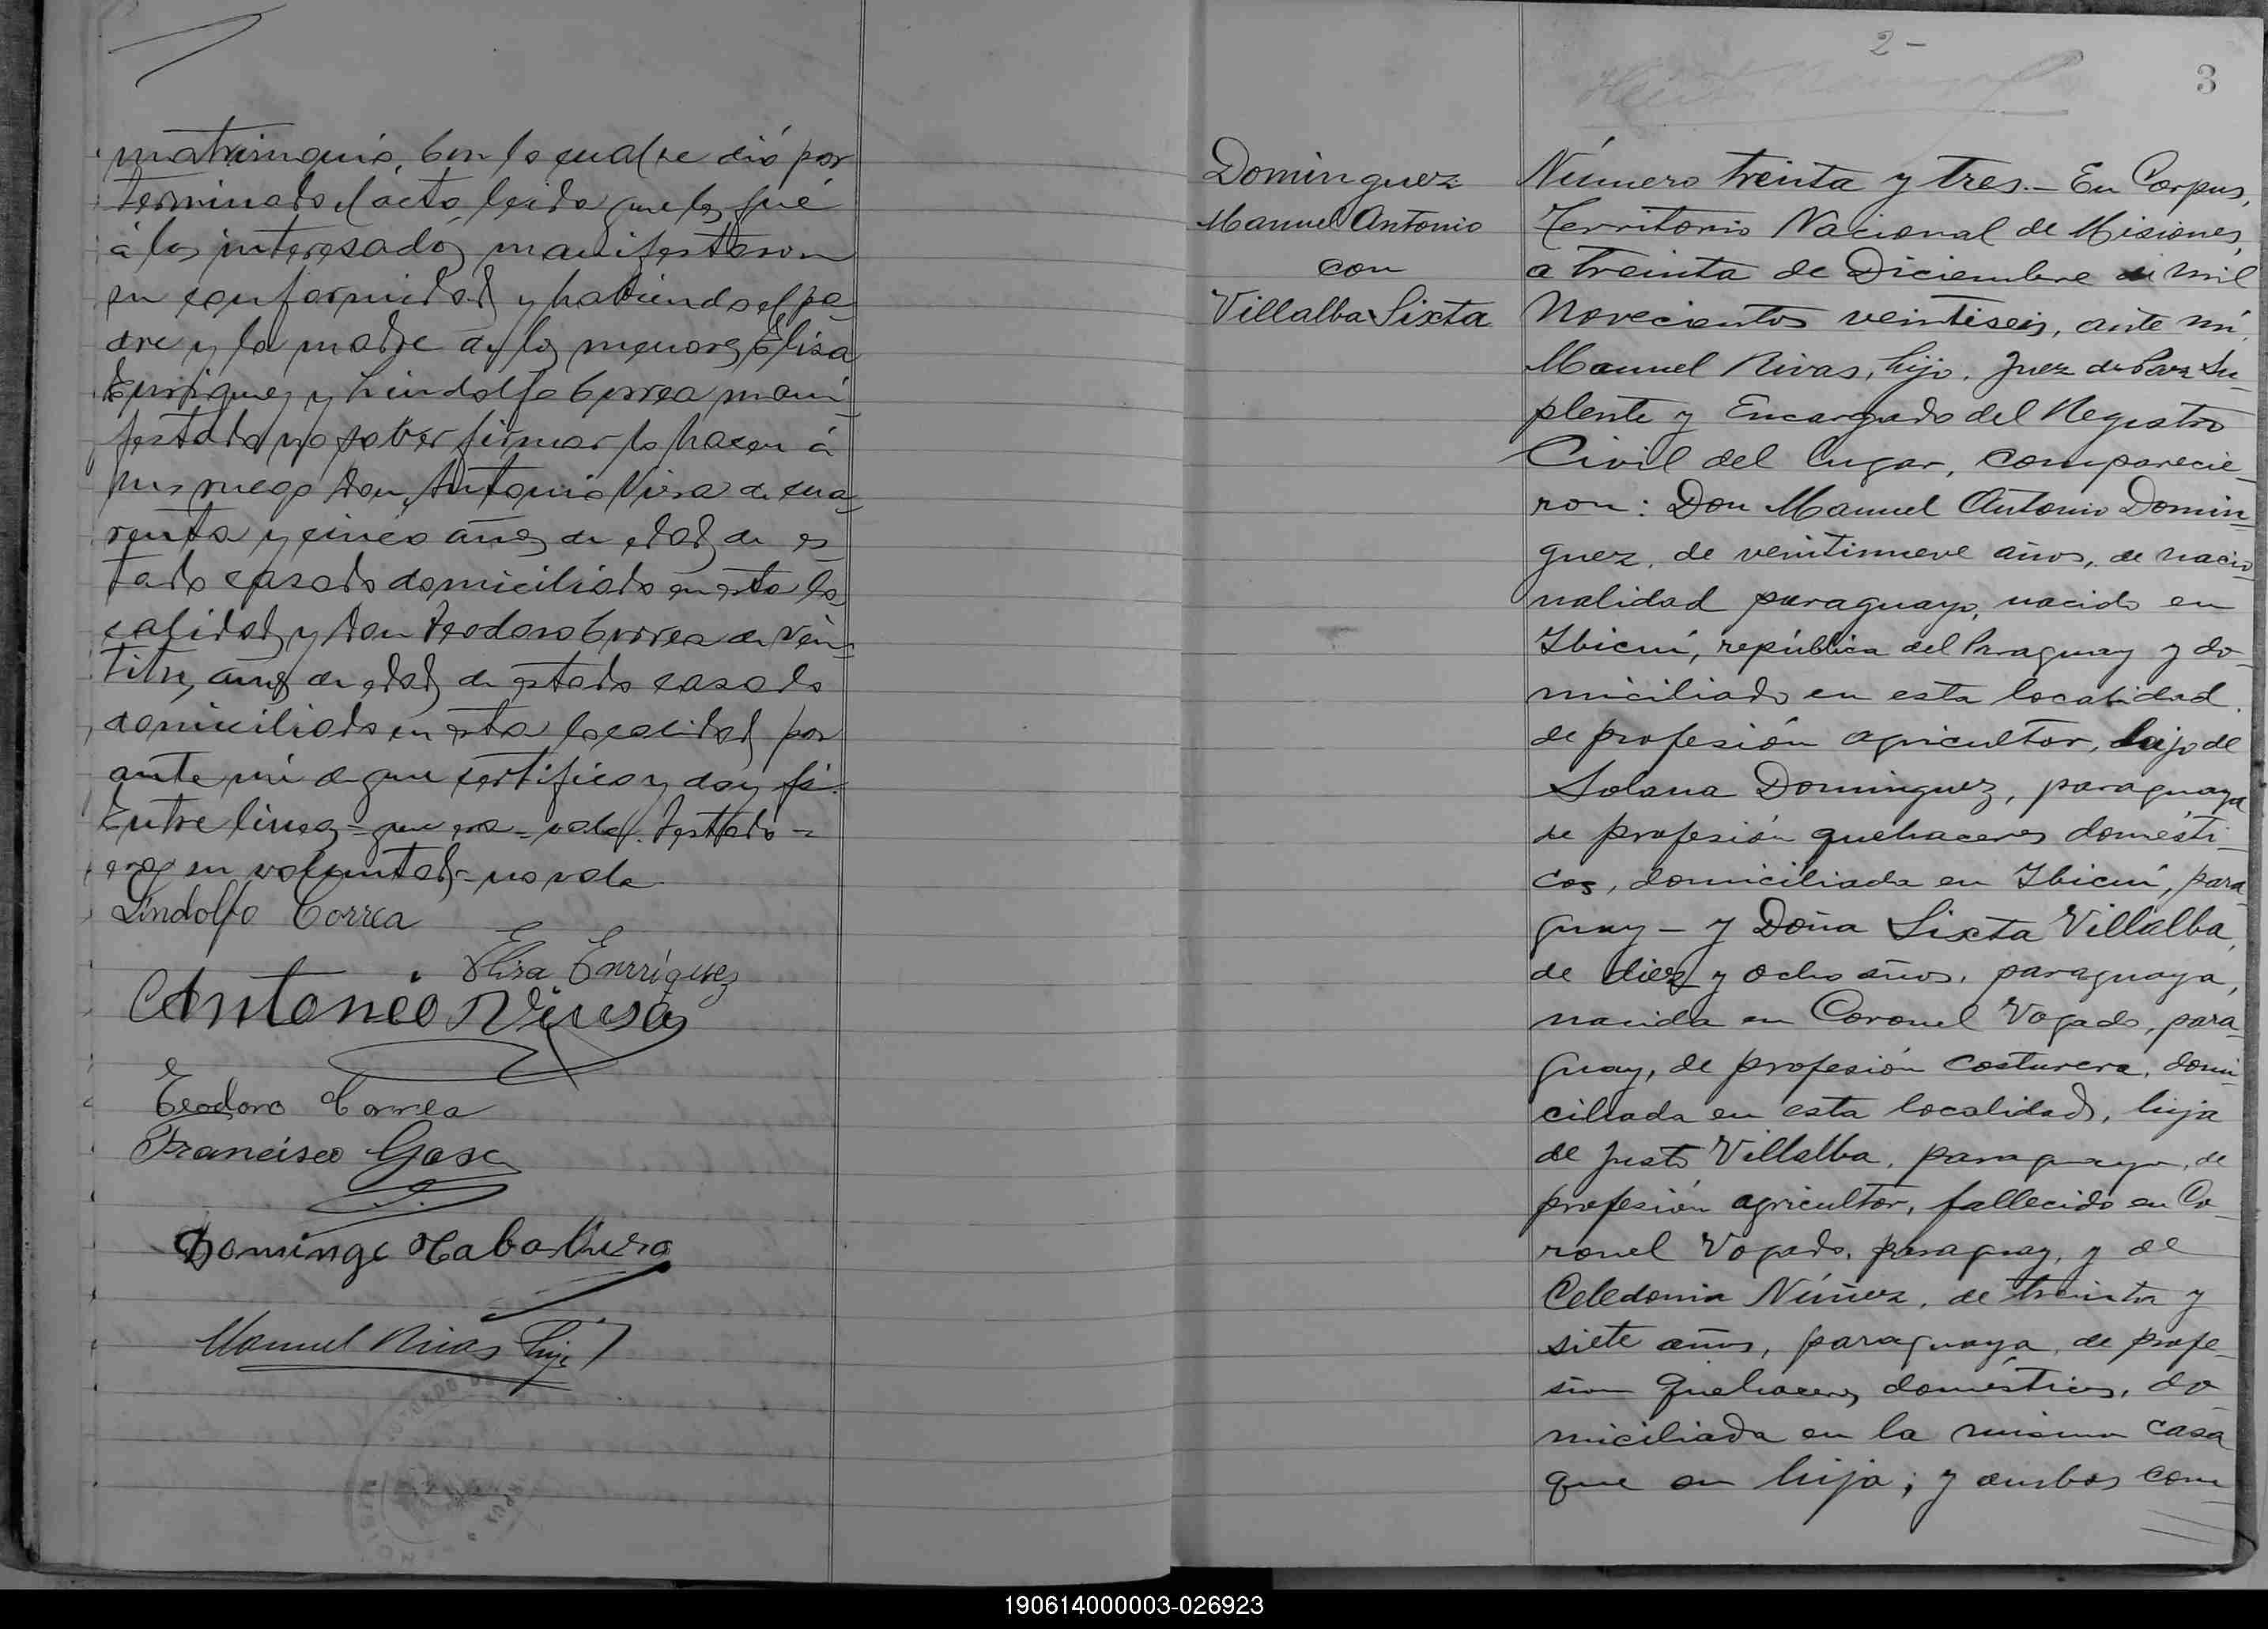 matrimonio. Con lo cual se dió por
terminado el acto, leida que les fué
á los interesados, manifestaron
su conformidad y habiendo el pa-
dre y la madre de los menores Elisa
Enrriquez y Lindolfo Correa mani-
festado no saber firmar lo hacen á
sus ruego don Antonio Viera de cua-
renta y cinco años de edad de es-
tado casado domiciliado en esta lo-
calidad y don Teodoro Correa de vein-
titres años de edad de estado casado
domiciliado en esta localidad por
ante mi de que certifico y doy fé.
Entre lineas = que era = vale. Testado =
en voluntad = no vale
Lindolfo Correa
Elisa Enrriquez
Antonio
Teodoro Correa
Francisco
Domingo
Manuel Rivas hijo
2 -
3
Dominguez
Manuel Antonio
con
Villalba Sixta
Número treinta y tres.- En Corpus,
Territorio Nacional de Misiones,
a treinta de Diciembre de mil
novecientos veintiseis, ante mí,
Manuel Rivas, hijo, Juez de Paz Su-
plente y Encargado del Registro
Civil del lugar, comparecie-
ron: Don Manuel Antonio Domin-
guez, de veintinueve años, de nacio-
nalidad paraguayo, nacido en
Ibicuí, república del Paraguay y do-
miciliado en esta localidad,
de profesión agricultor, hijo de
Solana Dominguez, paraguaya
de profesión quehaceres domésti-
cos, domiciliada en Ibicuí, para-
guay - y Doña Sixta Villalba,
de diez y ocho años, paraguaya,
nacida en Coronel Vogado, para-
guay, de profesión costurera, domi-
ciliada en esta localidad, hija
de Justo Villalba, paraguayo, de
profesión agricultor, fallecido en Co-
ronel Vogado, paraguay, y de
Celedonia Núñez, de treinta y
siete años, paraguaya, de profe-
sion quehaceres domésticos, do-
miciliada en la misma casa
que su hija; y ambos com-
190614000003-026923